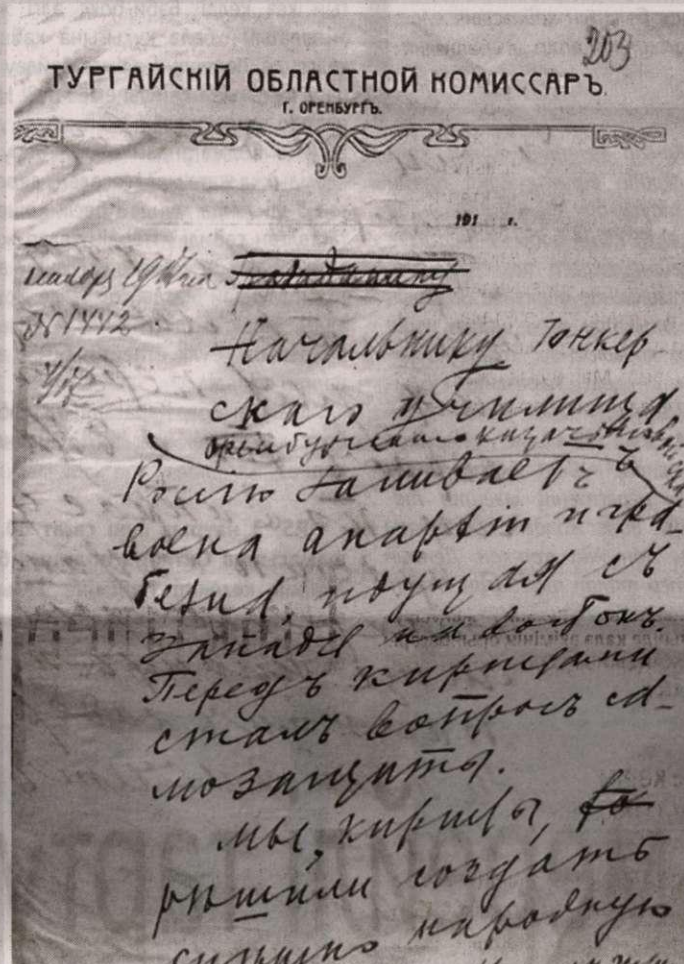 203
ТУРГАЙСКІЙ ОБЛАСТНОЙ КОМИССАРЪ.
Г. ОРЕНБУРГЪ.
191 г.
№ 1442
Начальнику Юнкер
скаго училища
оренбургскаго казачьяго
Россію заливаетъ
волна анархіи и гра-
бежа, идущая съ
запада на востокъ.
Передъ киргизами
сталъ вопросъ са-
мозащиты.
Мы, киргизы,
рѣшили создать
народную